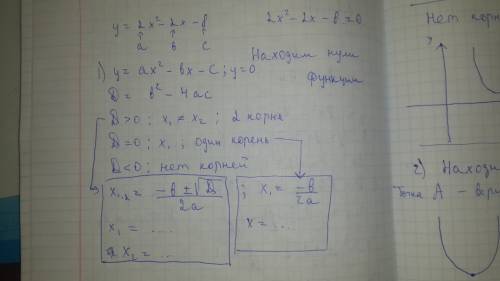 y = 2x² - 2x - 6
2x² - 2x - 6 = 0
a в c
Находим нули функции
1) y = ax² - вx - c ; y=0
D = в² - 4ac
D>0 ; x₁ ≠ x₂ ; 2 корня
D=0 ; x₁ ; один корень
D<0 ; нет корней
x₁,₂ = (-в ± √D) / 2a
x₁ = ....
x₂ = ...
; x₁ = -в / 2a
x = ...
Нет корн
y
2) Находи
Точка A - верш